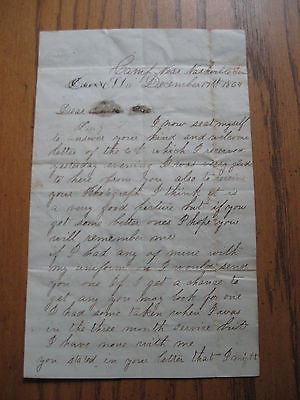 Camp near Nashville Tenn
December 11th 1864
Dear
I now seat myself
to answer your kind and welcome
letter of the which I received
yesterday evening I was very glad
to here from you also to receive
your Photograph I think it is
a very good picture but if you
get some better ones I hope you
will remember me
if I had any of mine with
my uniform I would send
you one if I get a chance to
get any you may look for one
I had some taken when I was
in the three month service but
I have none with me
you stated in your letter that I might